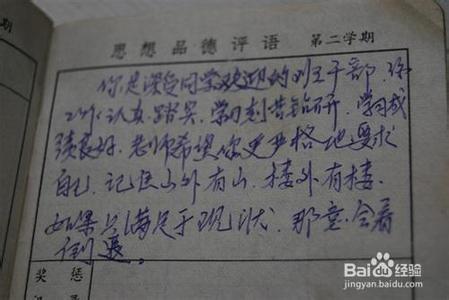 思想品德评语 第二学期
你是深受同学欢迎的 干部,你
工作认真踏实,学习刻苦钻研,学习成
绩良好。老师希望你更严格地要求
自己,记住山外有山,楼外有楼,
如果只满足于现状,那 会着
倒退。
奖 惩
Baidu 经验
jingyan.baidu.com